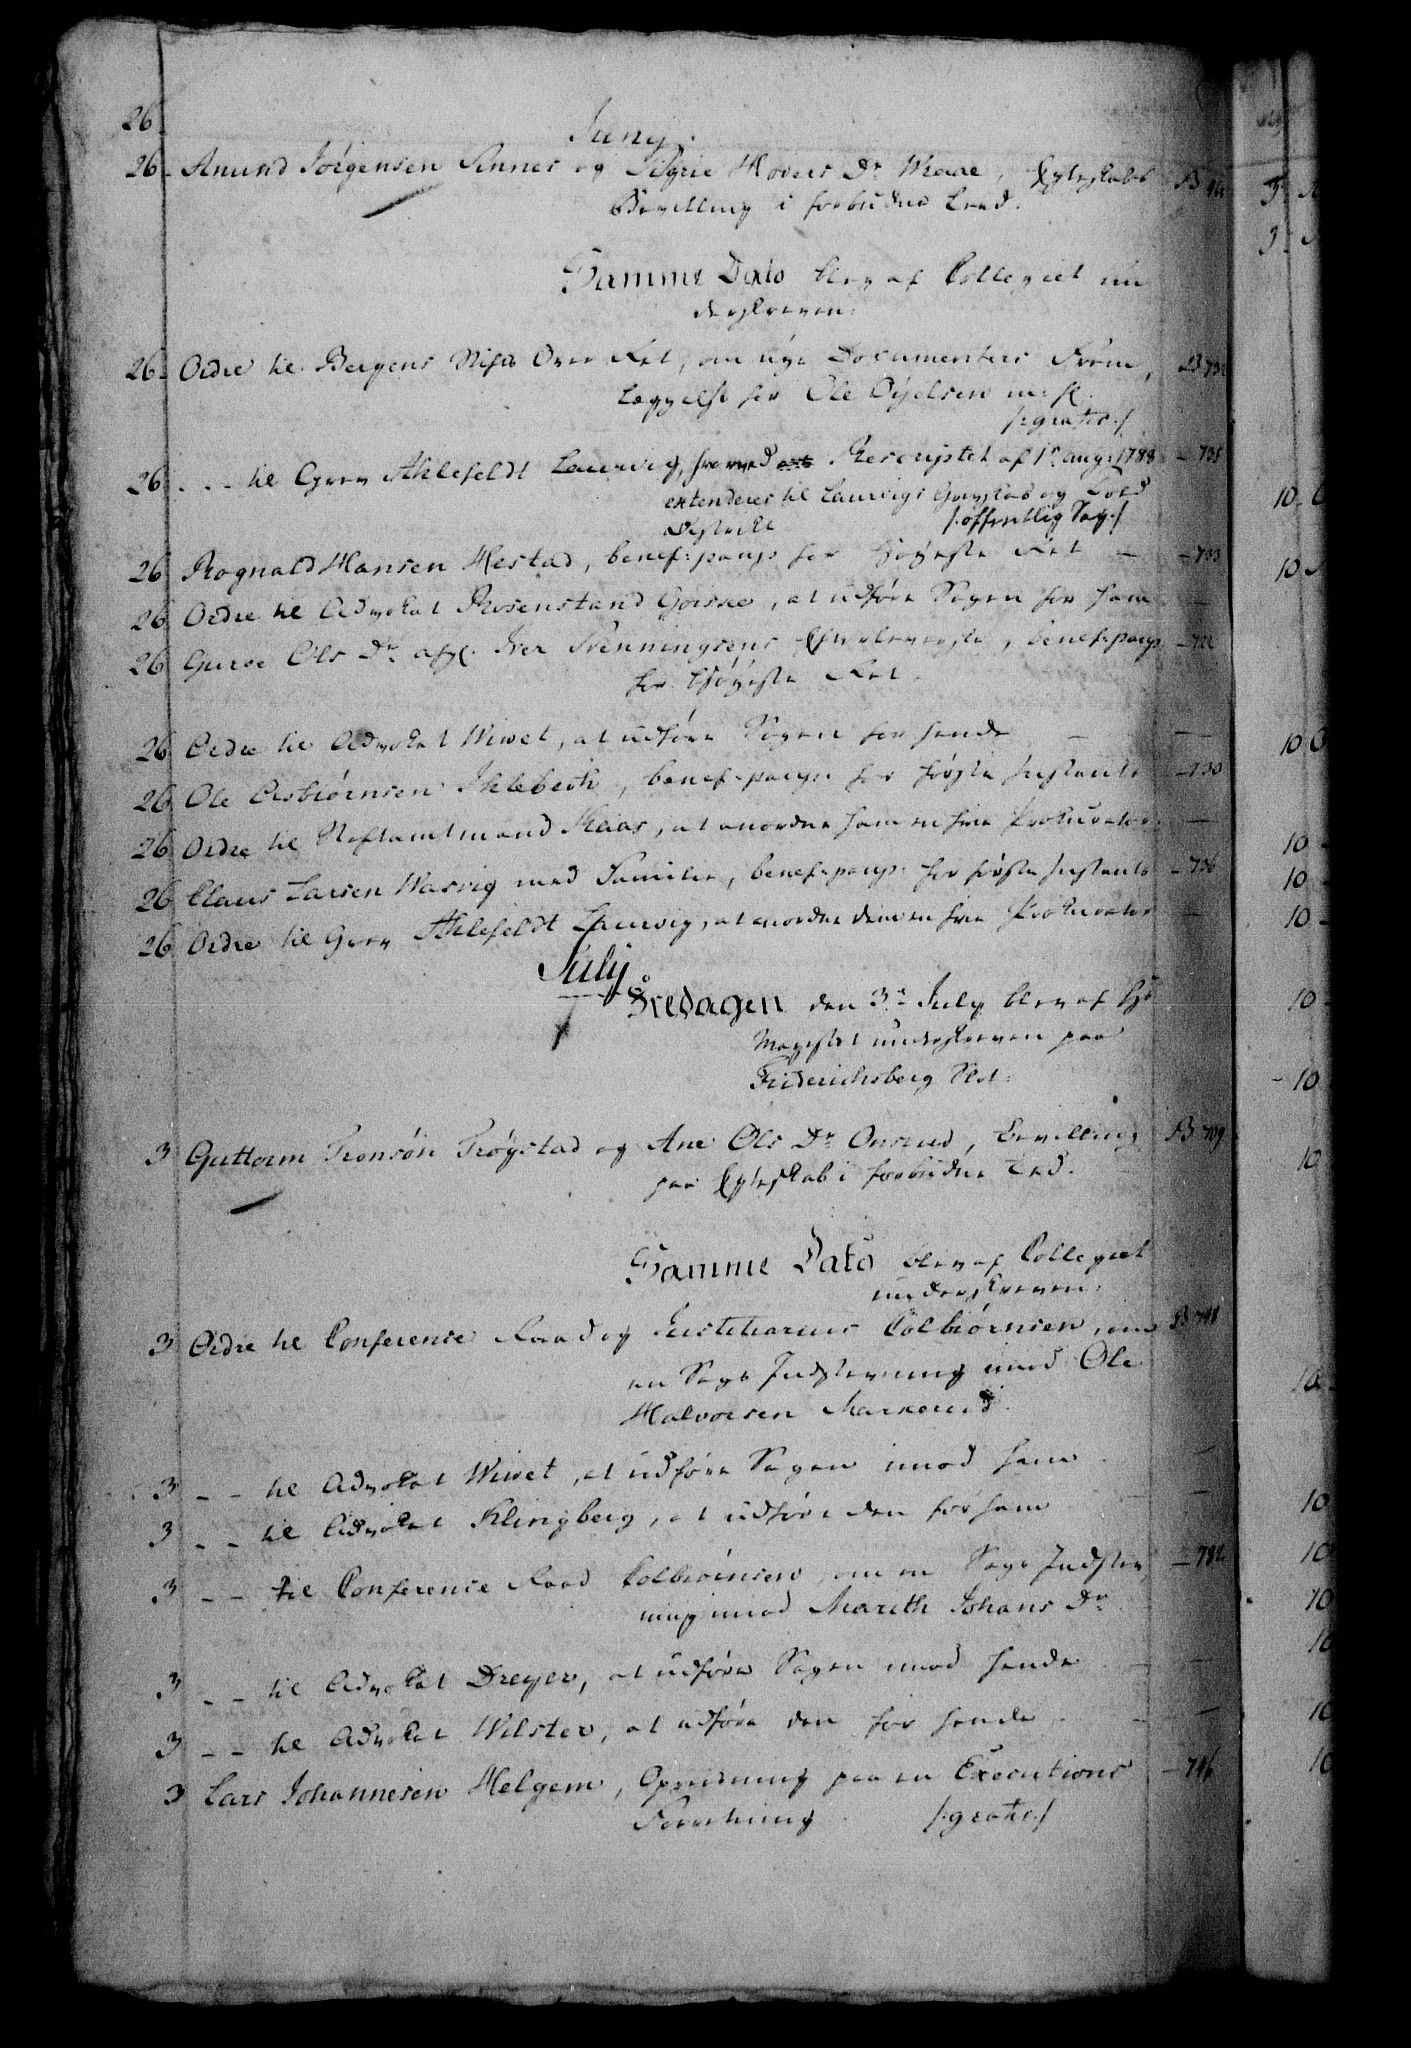 26
Juny.
26 Amund Jörgensen Sinnes og Sigrie Hovers Dr. Waae, Egteskabs
Bevilling i forbuden Leed.
Samme Dato blev af Collegiet un
derskreven:
26 Ordre til Bergens Stifts Over Ret, om nye Documenters Frem,
læggelse for Ole Eyelsen m: fl. /:gratis:/
26 - - til Grev Ahlefeldt Laurvig, hvorved Rescriptet af 1ste aug: 1788 - 735
extenderes til Laurvigs Grevskab og Told
Districkt /:offentlig Sag:/
26 Rognald Hansen Hestad, benef: paup: for Høyeste Ret - - 733
26 Ordre til Advokat Rosenstand Goiske, at udføre Sagen for ham -
26 Guroe Ols Dr. afg. Iver Svenningsens Efterleverske, benef: paup:
for Høyeste Ret.
26 Ordre til Advokat Wivet, at udføre Sagen for hende - -
26 Ole Esbiörnsen Ihlebech, benef: paup: for første Instants - 730
26 Ordre til Stiftamtmand Kaas, at anordne ham en frie Prokurator. -
26 Claus Larsen Wasvig med Familie, benef: paup: for første Instants - 736
26 Ordre til Grev Ahlefeldt Laurvig, at anordne dem en frie Prokurator -
July
Fredagen den 3die July blev af Hs
Majestet underskreven paa
Friderichsberg Slot:
3 Guttorm Tronsön Trögstad og Ane Ols Dr. Onsrud, Bevilling B 709
paa Egteskab i forbuden Led.
Samme Dato blev af Collegiet
underskreven:
3 Ordre til Conference Raad og Justitiarius Colbiörnsen, om B 748
en Sags Indstevning imod Ole
Halvorsen Markerud.
3 - - til Advokat Wivet, at udføre Sagen imod ham -
3 - - til Advokat Klingberg, at udføre den for ham - -
3 - - til Conference Raad Colbiörnsen, om en Sags Indstev, - 782
ning imod Mareth Johans Dr.
3 - - til Advokat Dreyer, at udføre Sagen imod hende - -
3 - - til Advokat Wilster, at udføre den for hende - - -
3 Lars Johannesen Helgem, Opreisning paa en Executions - 746
Forretning /:gratis:/